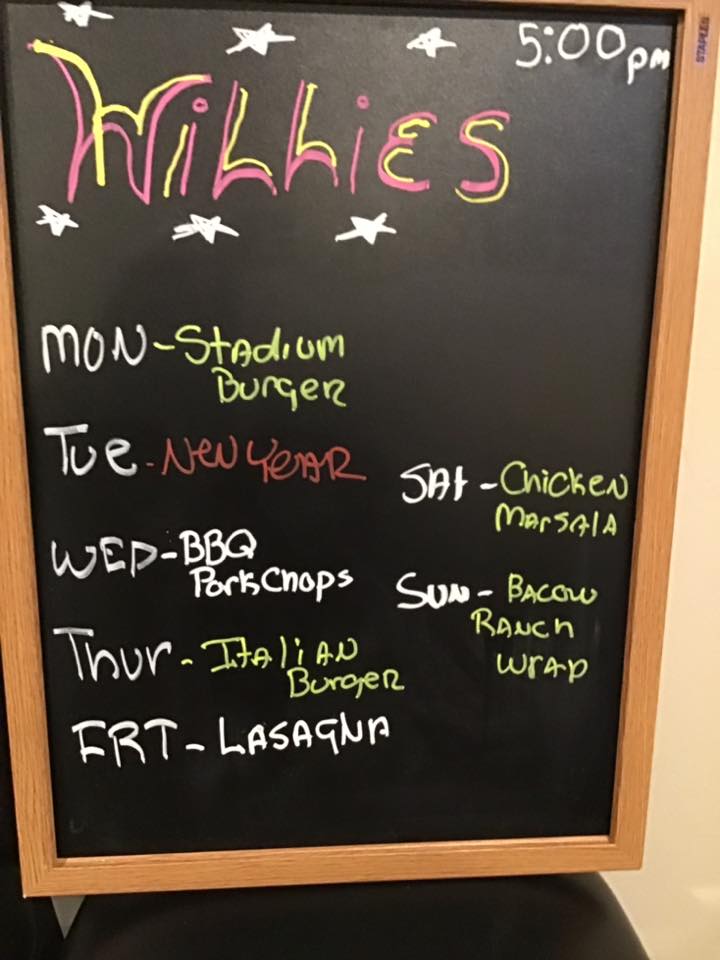 5:00pm
STAPLES
WiLLiES
MON-Stadium
Burger
Tue-New YEAR
WED-BBQ
Pork Chops
Thur-Italian
Burger
FRI-LASAGNA
SAt-Chicken
Marsala
SUN-BACON
RANch
wrap